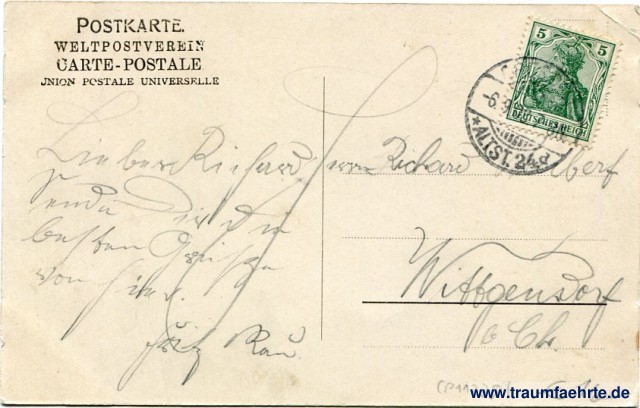 POSTKARTE.
WELTPOSTVEREIN
CARTE-POSTALE
UNION POSTALE UNIVERSELLE
5 5
DEUTSCHES REICH
-6.9
*ALTST. 24
Lieber Richard
sende Dir die
besten Grüße
von hier.
Rau.
Herrn Richard
Wittgensdorf
b Ch.
www.traumfaehrte.de